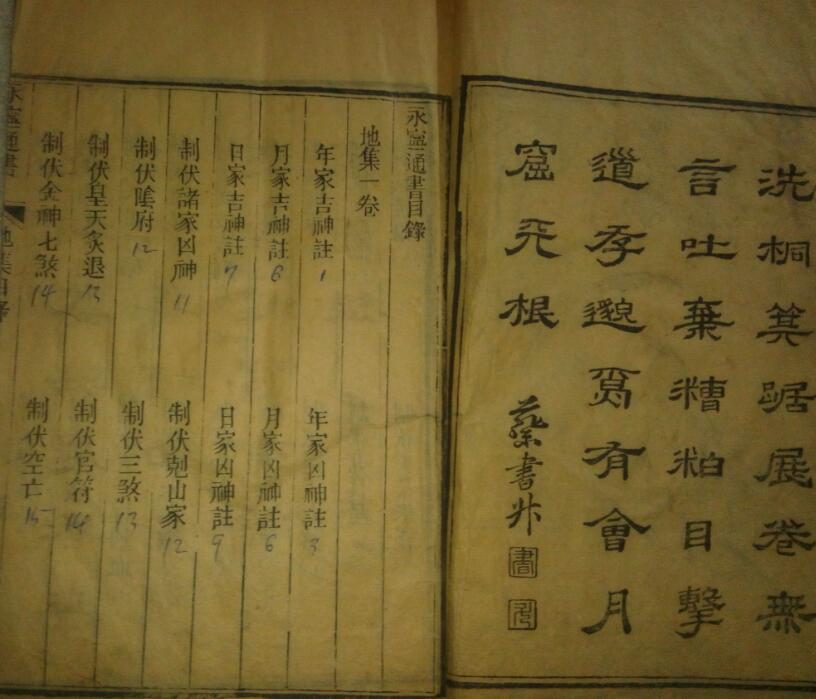 洗桐箕踞展卷無
言吐棄糟粕目擊
道存邈焉有會月
窟天根
蔡書升
永寧通書目錄
地集一卷
年家吉神註 1 年家凶神註 3
月家吉神註 6 月家凶神註 6
日家吉神註 7 日家凶神註 9
制伏諸家凶神 11 制伏剋山家 12
制伏陰府 12 制伏三煞 13
制伏皇天灸退 13 制伏官符 14
制伏金神七煞 14 制伏空亡 15
永寧通書 地集目錄